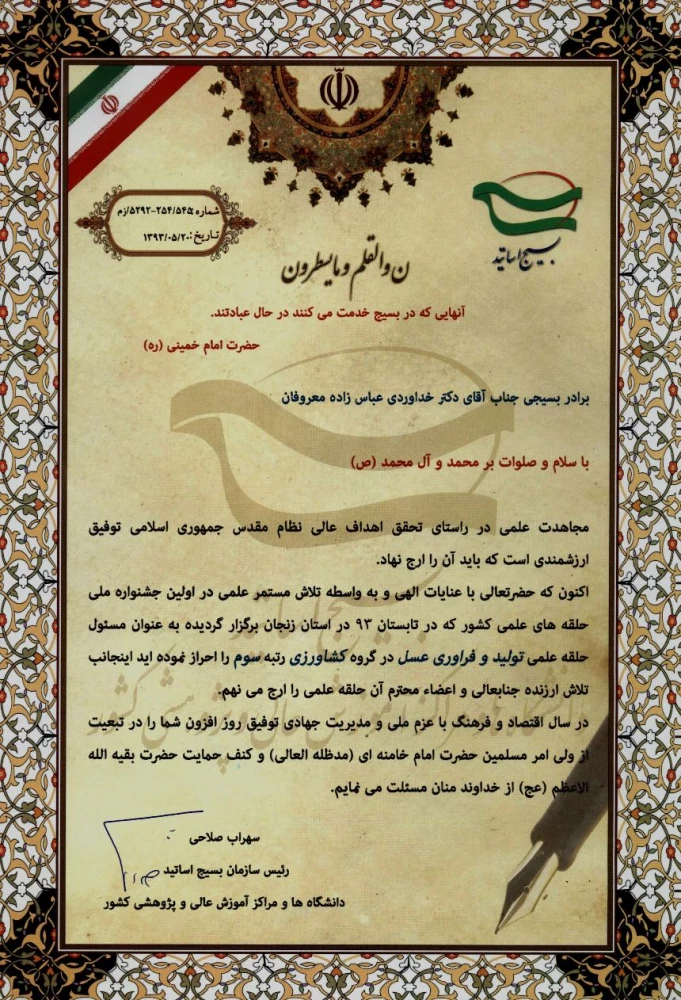 شماره :۵۲۹۲-۲۵۴/۵۴۵/زم
تاریخ :۱۳۹۳/۰۵/۲۰
بسیج اساتید
ن والقلم و ما یسطرون
آنهایی که در بسیج خدمت می کنند در حال عبادتند.
حضرت امام خمینی (ره)
برادر بسیجی جناب آقای دکتر خداوردی عباس زاده معروفان
با سلام و صلوات بر محمد و آل محمد (ص)
مجاهدت علمی در راستای تحقق اهداف عالی نظام مقدس جمهوری اسلامی توفیق
ارزشمندی است که باید آن را ارج نهاد.
اکنون که حضرتعالی با عنایات الهی و به واسطه تلاش مستمر علمی در اولین جشنواره ملی
حلقه های علمی کشور که در تابستان ۹۳ در استان زنجان برگزار گردیده به عنوان مسئول
حلقه علمی تولید و فراوری عسل در گروه کشاورزی رتبه سوم را احراز نموده اید اینجانب
تلاش ارزنده جنابعالی و اعضاء محترم آن حلقه علمی را ارج می نهم.
در سال اقتصاد و فرهنگ با عزم ملی و مدیریت جهادی توفیق روز افزون شما را در تبعیت
از ولی امر مسلمین حضرت امام خامنه ای (مدظله العالی) و کنف حمایت حضرت بقیه الله
الاعظم (عج) از خداوند منان مسئلت می نمایم.
سهراب صلاحی
رئیس سازمان بسیج اساتید
دانشگاه ها و مراکز آموزش عالی و پژوهشی کشور